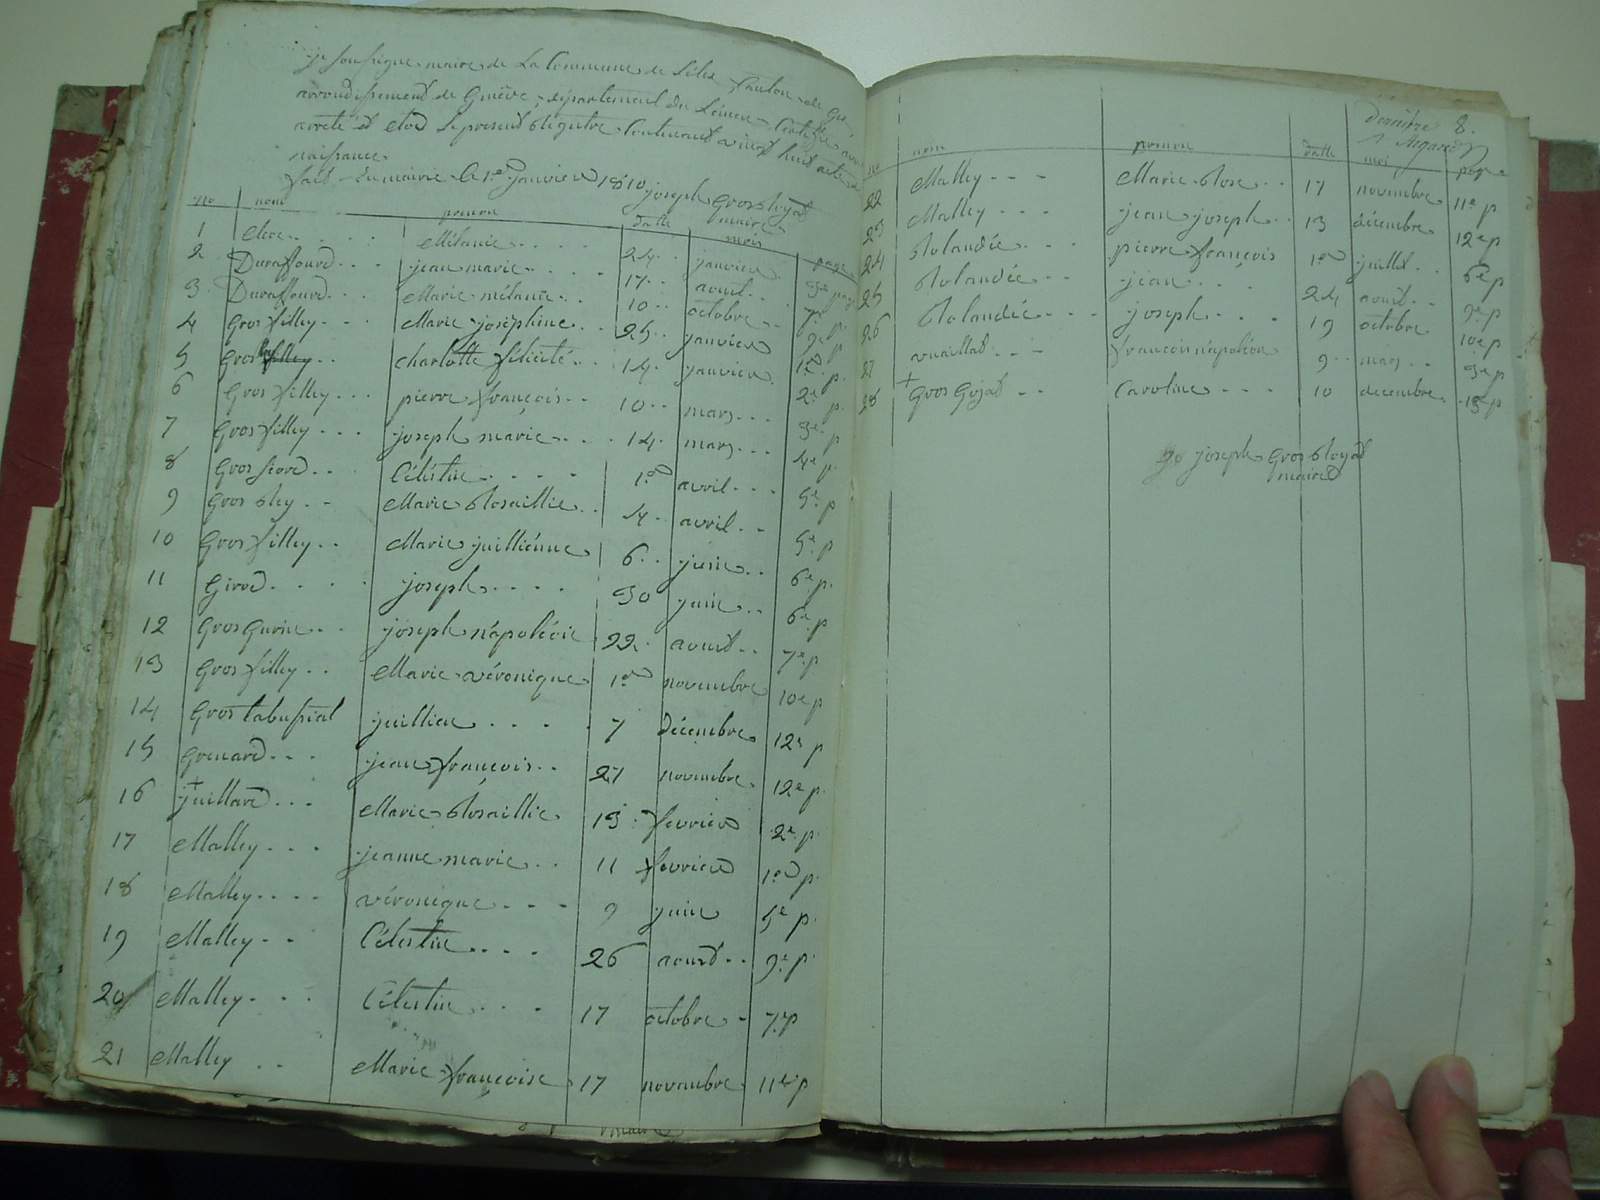 je soussigne maire de La Commune de Lélex Canton de Gex
arrondissement de Genêve, département du Léman Certifie avoir
arreté et clod le present Régistre Contenant vingt huit acte de
naissance
fait En mairie le 1er janvier 1810 joseph Gros Royat
maire
no nom prenom datte mois page
1 Mélanie 24 janvier
2 Duraffourd jean marie 17 aout 7e p.
3 Duraffourd Marie mélanie 10 octobre 9e p.
4 Gros filley Marie joséphine 25 janvier 1er p.
5 Gros charlotte félicité 14 janvier 2e p.
6 Gros filley pierre françois 10 mars 3e p
7 Gros filley joseph marie 14 mars 4e p.
8 Gros Célestin 1er avril 5e p
9 Gros Marie Rosaillie 4 avril 5e p
10 Gros filley Marie juillienne 6 juin 6e p.
11 Girod joseph 30 juin 6e p
12 Gros Gurin joseph napoléon 22 aoust 7e p
13 Gros filley Marie véronique 1er novembre 10e p
14 Gros tabussiat juillien 7 décembre 12e p
15 Grenard jean françois 27 novembre 12e p.
16 juillard Marie Rosaillie 13 fevrier 2e p.
17 Malley jeanne marie 11 fevrier 1er p.
18 Malley véronique 9 juin 5e p.
19 Malley Célestin 26 aoust 9e p.
20 Malley Célestin 17 octobre 7e p
21 Malley Marie françoise 17 novembre 11e p
dernier 8.
no nom prenom datte moi page
22 Malley Marie Rose 17 novembre 11e p
23 Malley jean joseph 13 décembre 12e p
24 Rolandée pierre françois 1er juillet 6e p
25 Rolandée jean 24 aoust 9e p
26 Rolandée joseph 19 octobre 10e p
27 vuaillat francois napoléon 9 mars 3e p
28 Gros Gojat Caroline 10 decembre 13e p
joseph Gros Royat
maire